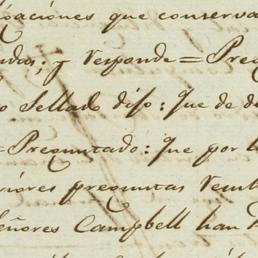 caciones que conserva
das; y Responde = Preg
o Sellado dijo: Que de d
= Preguntado: Que por l
riores preguntas
eñores Campbell han